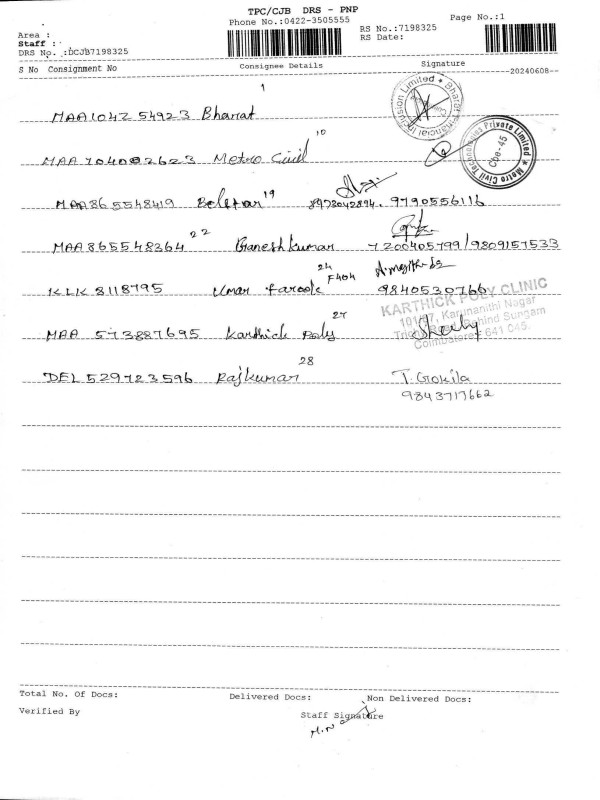 TPC/CJB DRS - PNP
Phone No.:0422-3505555
Page No.:1
Area :
RS No.:7198325
Staff :
RS Date:
DRS No. :DCJB7198325
S No Consignment No Consignee Details Signature
20240608
1
MAA1042 54923 Bharat
Bharat Financial Inclusion Limited
10
MAA704002623 Metro Civil
Metro Civil Technologies Private Limited
Cbe-45
19
MAA865548419 Belstar 8973042894. 9790556116
22
MAA865548364 Ganeshkumar 7200405799/9809157533
24
F404
KLK 8118795 Umar Farook 9840530766
KARTHICK POLY CLINIC
Karunanithi Nagar
Behind Sungam
Coimbatore - 641 045.
27
MAA 573887695 Karthick Poly
28
DEL529723596 Rajkumar T. Gokila
9843717662
Total No. Of Docs: Delivered Docs: Non Delivered Docs:
Verified By Staff Signature